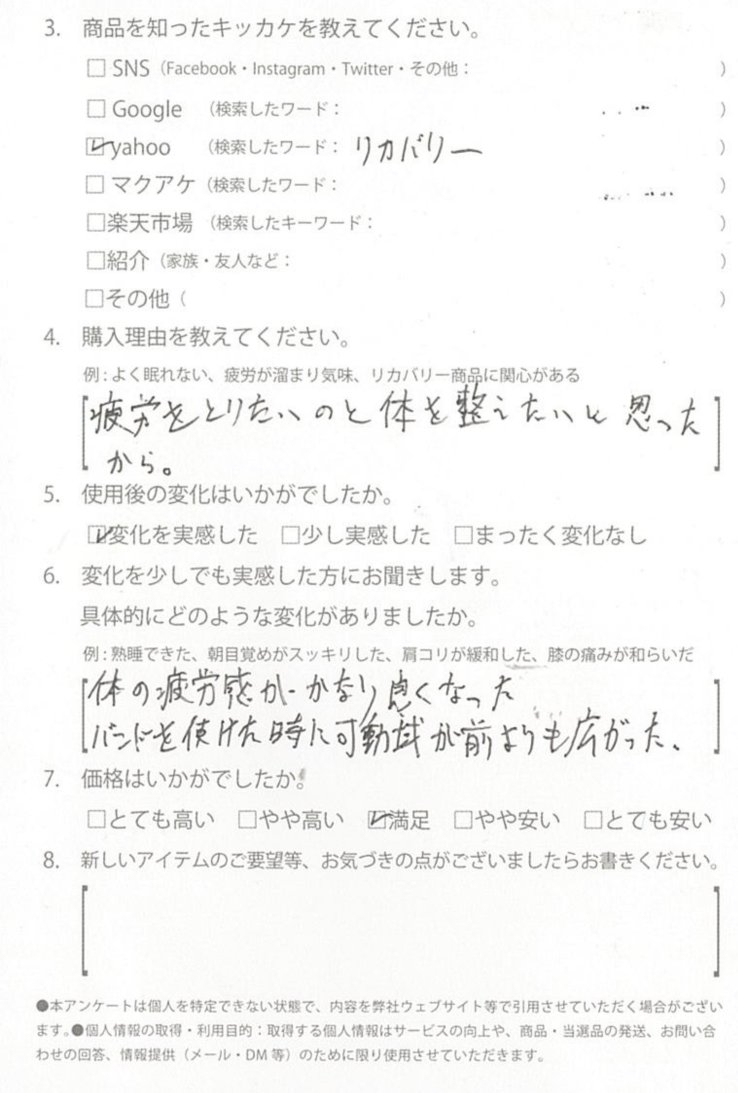 3. 商品を知ったキッカケを教えてください。
□ SNS（Facebook・Instagram・Twitter・その他： ）
□ Google （検索したワード： ）
☑yahoo （検索したワード： リカバリー ）
□ マクアケ （検索したワード： ）
□楽天市場 （検索したキーワード： ）
□紹介（家族・友人など： ）
□その他（ ）
4. 購入理由を教えてください。
例：よく眠れない、疲労が溜まり気味、リカバリー商品に関心がある
疲労をとりたいのと体を整えたいと思った
から。
5. 使用後の変化はいかがでしたか。
☑変化を実感した □少し実感した □まったく変化なし
6. 変化を少しでも実感した方にお聞きします。
具体的にどのような変化がありましたか。
例：熟睡できた、朝目覚めがスッキリした、肩コリが緩和した、膝の痛みが和らいだ
体の疲労感がかなり良くなった
バンドを使けた時に可動域が前よりも広がった、
7. 価格はいかがでしたか。
□とても高い □やや高い ☑満足 □やや安い □とても安い
8. 新しいアイテムのご要望等、お気づきの点がございましたらお書きください。
●本アンケートは個人を特定できない状態で、内容を弊社ウェブサイト等で引用させていただく場合がござい
ます。●個人情報の取得・利用目的：取得する個人情報はサービスの向上や、商品・当選品の発送、お問い合
わせの回答、情報提供（メール・DM 等）のために限り使用させていただきます。